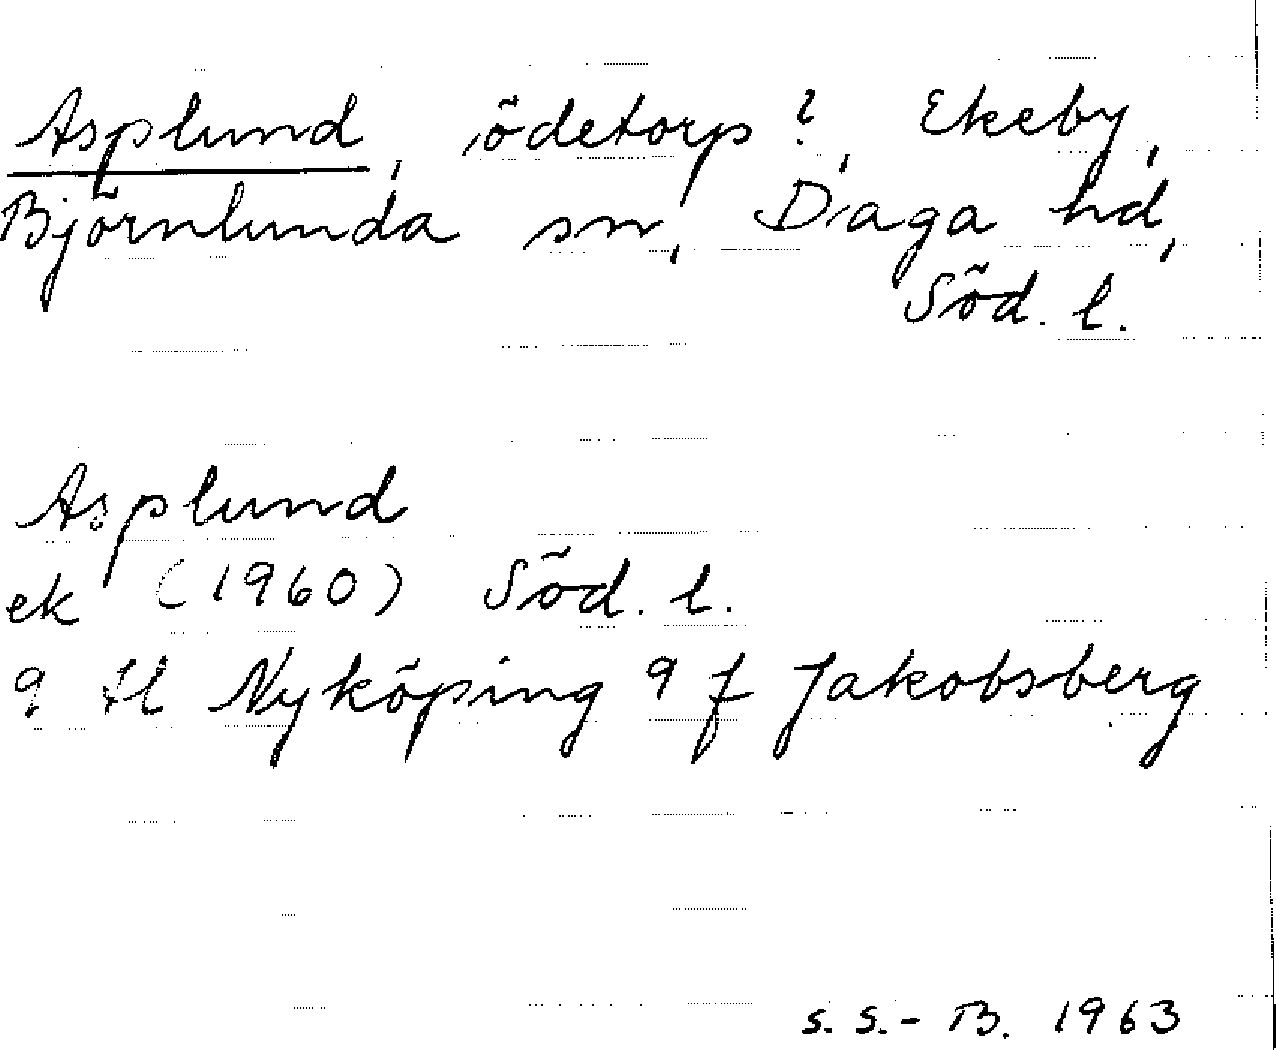 Asplund, ödetorp?, Ekeby,
Björnlunda sn, Daga hd,
Söd. l.
Asplund
ek (1960) Söd. l.
9 H Nyköping 9 f Jakobsberg
S. S.- B. 1963